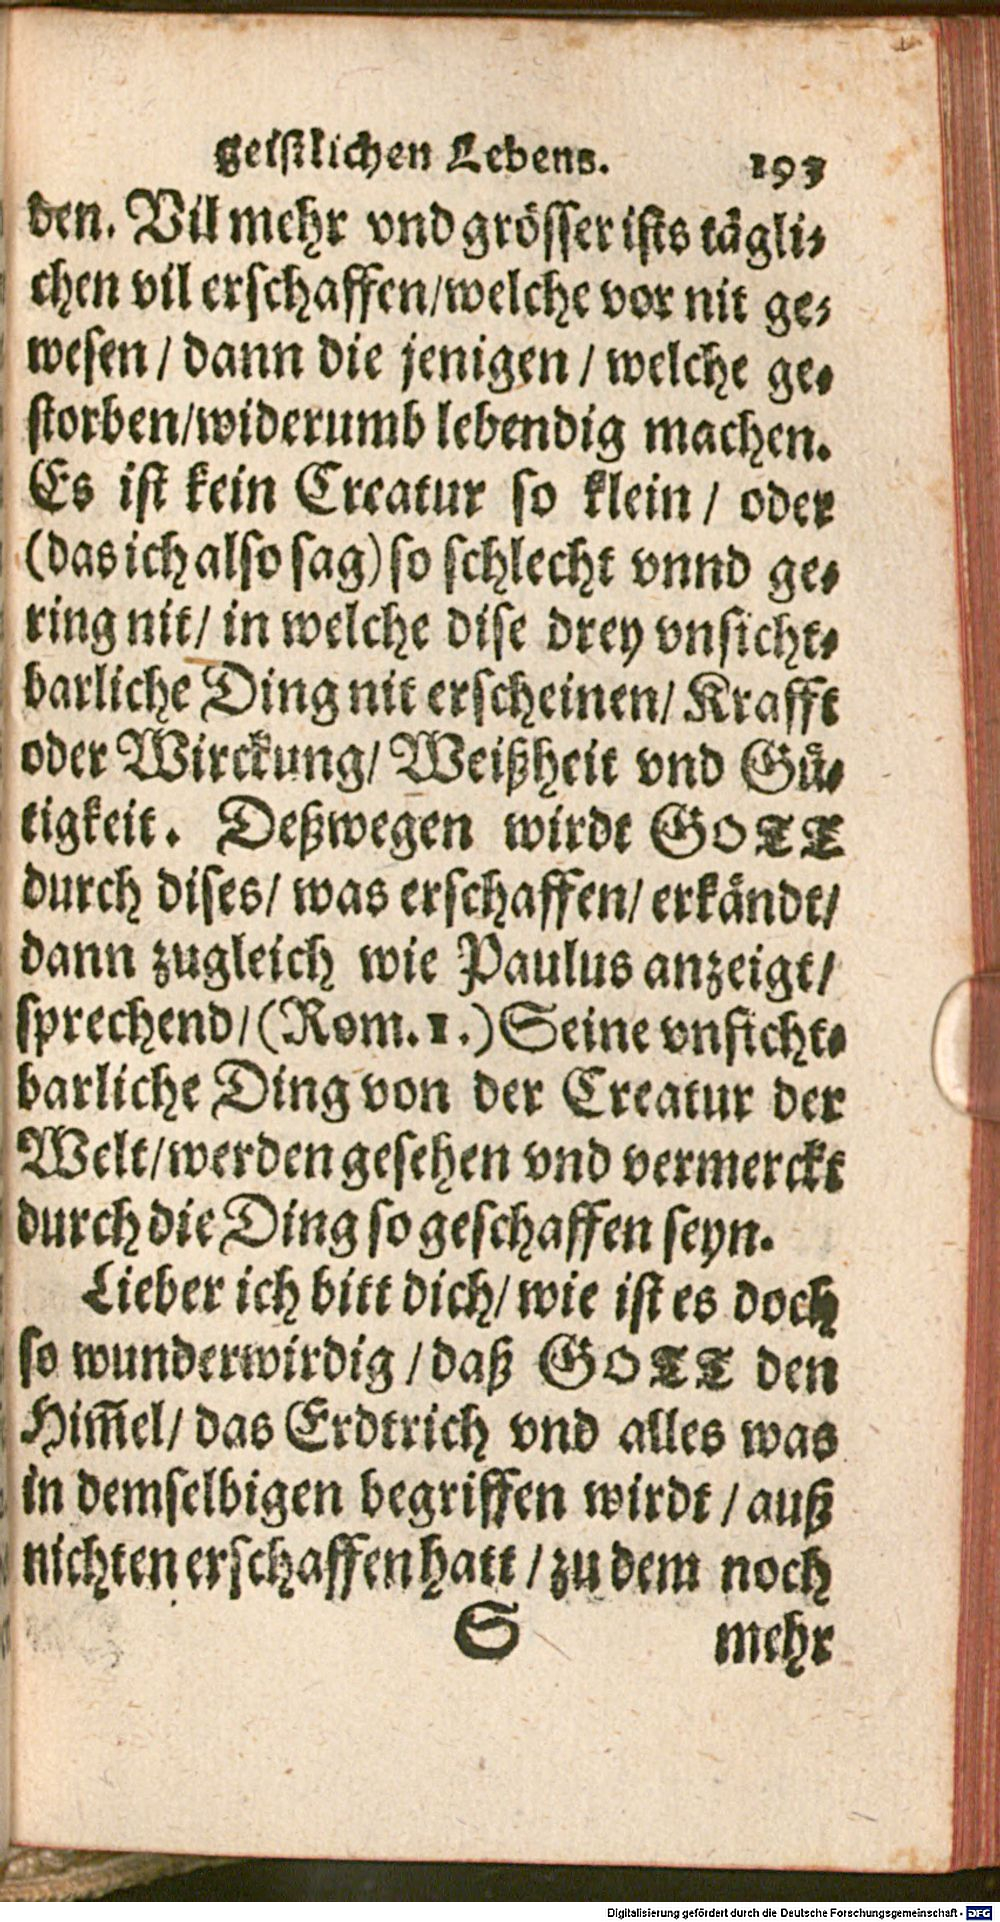 geistlichen Lebens. 193
den. Vil mehr vnd grösser ists tägli⸗
chen vil erschaffen/welche vor nit ge⸗
wesen / dann die jenigen / welche ge⸗
storben/widerumb lebendig machen.
Es ist kein Creatur so klein / oder
(das ich also sag) so schlecht vnnd ge⸗
ring nit/ in welche dise drey vnsicht⸗
barliche Ding nit erscheinen/ Krafft
oder Wirckung/ Weißheit vnd Gü⸗
tigkeit. Deßwegen wirdt GOTT
durch dises/ was erschaffen/ erkändt/
dann zugleich wie Paulus anzeigt/
sprechend/ (Rom. 1.) Seine vnsicht⸗
barliche Ding von der Creatur der
Welt/werden gesehen vnd vermerckt
durch die Ding so geschaffen seyn.
Lieber ich bitt dich/ wie ist es doch
so wunderwirdig / daß GOTT den
Him̃el/ das Erdtrich vnd alles was
in demselbigen begriffen wirdt / auß
nichten erschaffen hatt / zu dem noch
S mehr
Digitalisierung gefördert durch die Deutsche Forschungsgemeinschaft - DFG